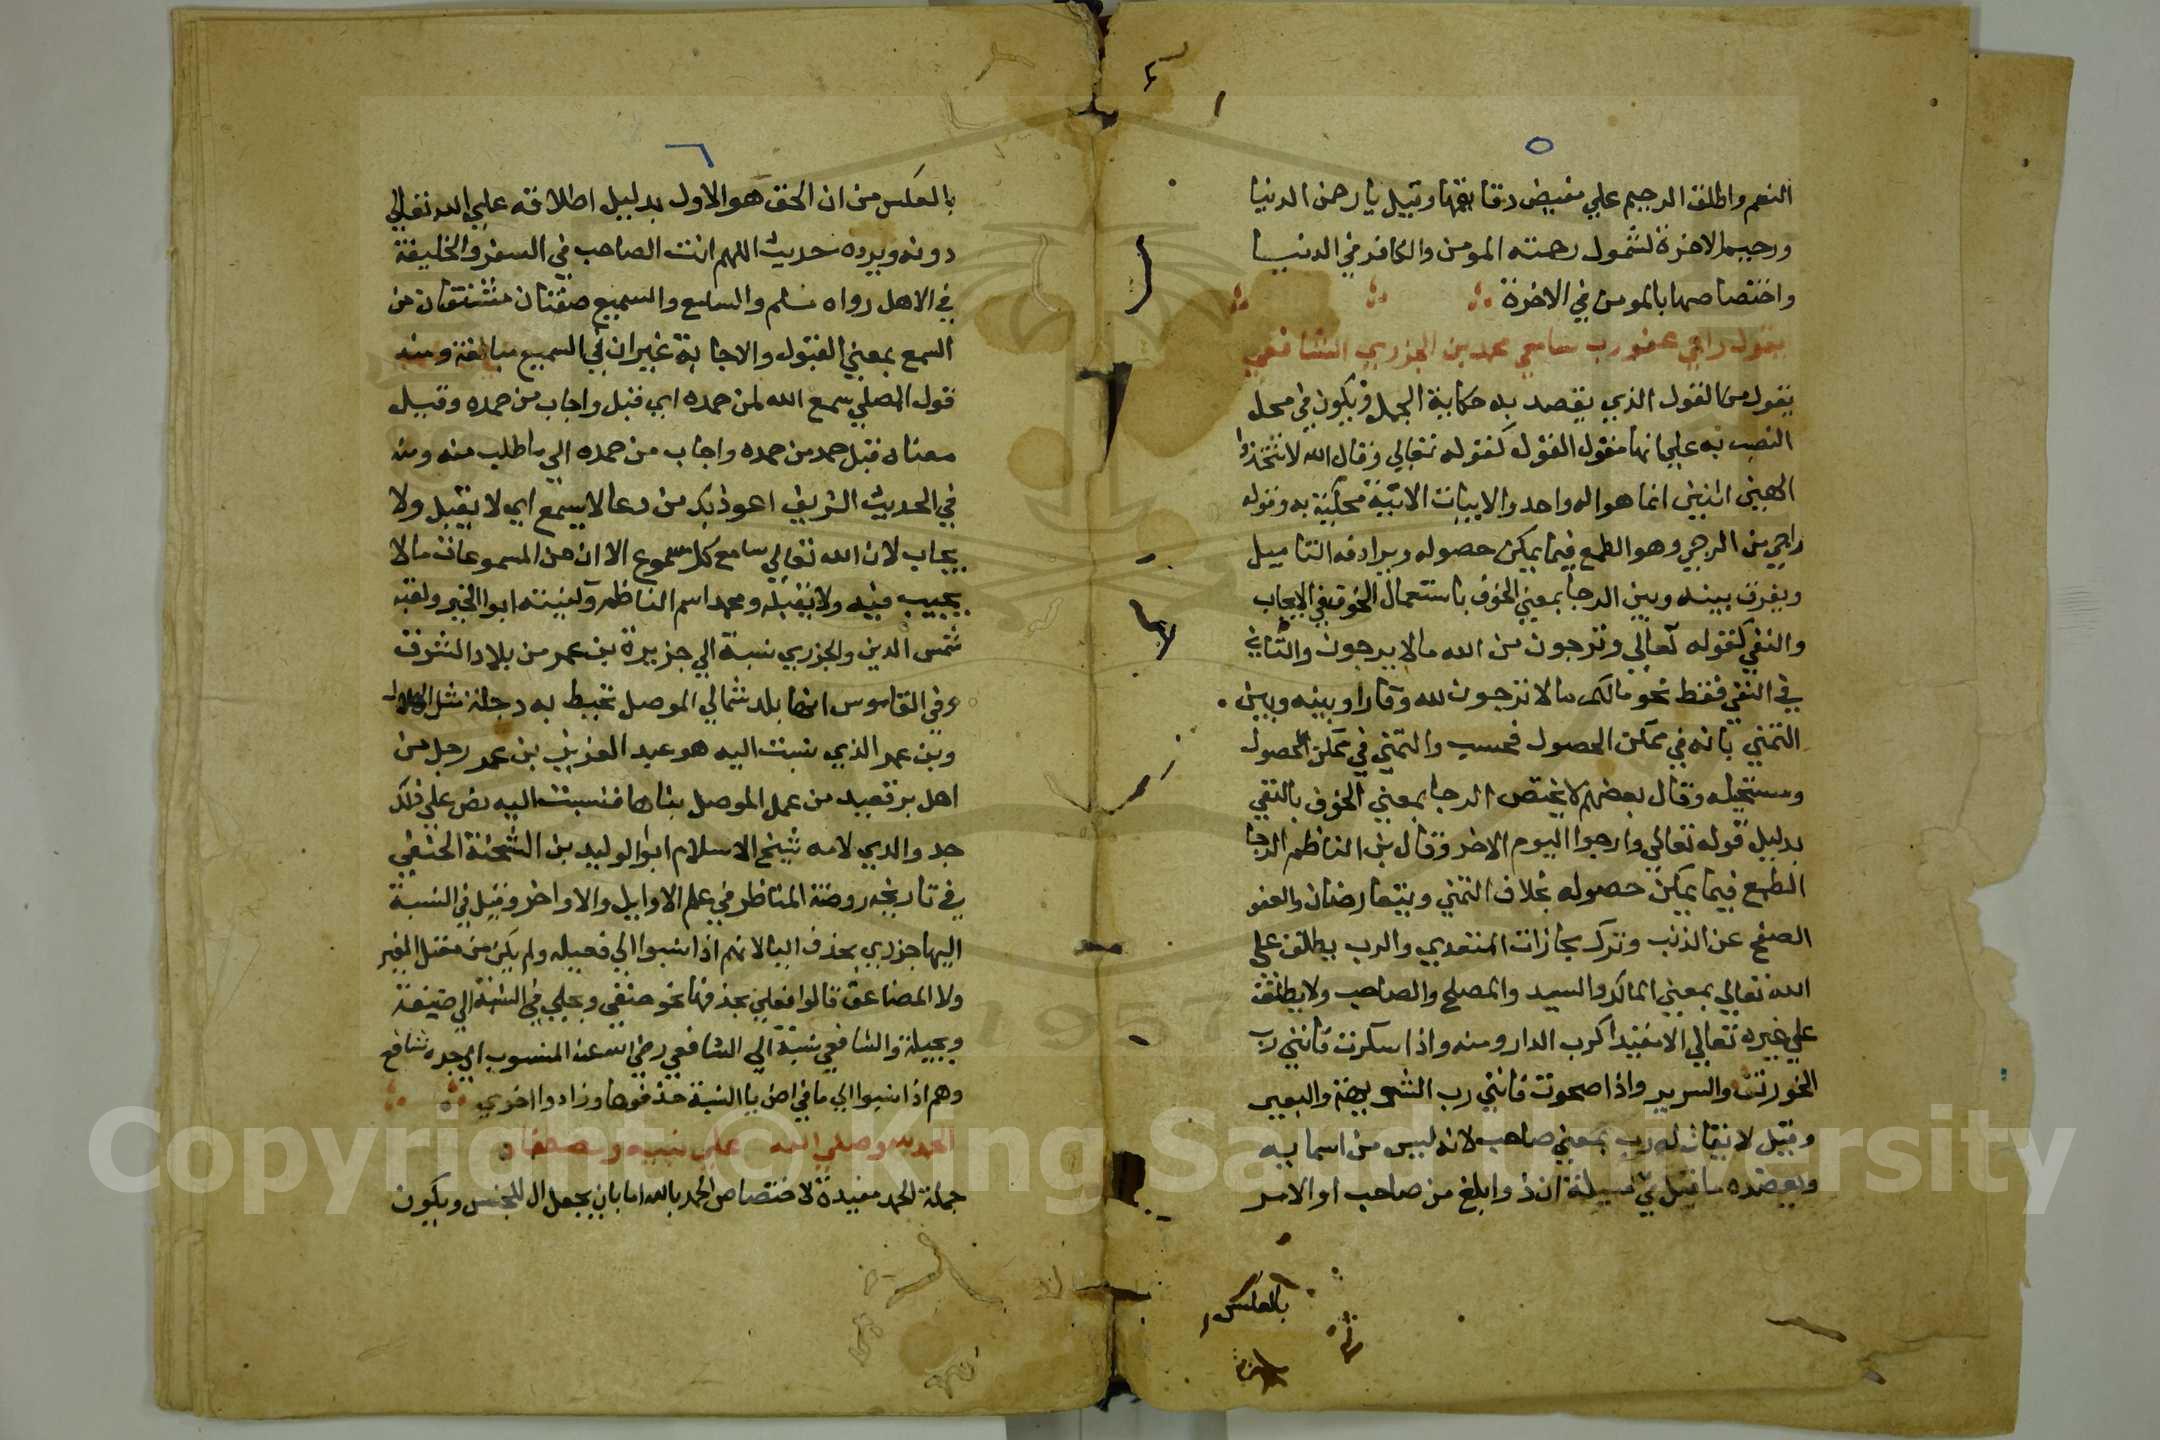 ٥
النعم واطلق الرحيم علي مفيض دقايقها وقيل يا رحمن الدنيا
ورحيم الاخرة لشمول رحمته المومن والكافر في الدنيا
واختصاصها بالمومن في الاخرة
يقول راجي عفو رب سامع محمد بن الجزري الشافعي
يقول من القول الذي يقصد به حكاية الجمل ويكون في محل
النصب به علي انها مقول القول كقوله تعالي وقال الله لا تتخذوا
الهين اثنين انما هو اله واحد والابيات الاتية محكية به وقوله
راجي من الرجي وهو الطمع فيما يمكن حصوله ويرادفه التاميل
ويفرق بينه وبين الرجا بمعني الخوف باستعمال الخوف في الايجاب
والنفي كقوله تعالي وترجون من الله ما لا يرجون والثاني
في النفي فقط نحو مالكم لا ترجون لله وقارا وبينه وبين
التمني بانه في ممكن الحصول فحسب والتمني في ممكن الحصول
ومستحيله وقال بعضهم لا يختص الرجا بمعني الخوف بالنفي
بدليل قوله تعالي وارجوا اليوم الاخر وقال بن الناظم الرجا
الطمع فيما يمكن حصوله بخلاف التمني ويتعارضان والعفو
الصفح عن الذنب وترك مجازات المتعدي والرب يطلق علي
الله تعالي بمعني المالك والسيد والمصلح والصاحب ولا يطلق
علي غيره تعالي الا مقيدا كرب الدار ومنه واذا سكرت فانني رب
الخورنق والسرير واذا صحوت فانني رب الشويهة والبعير
وقيل لا يقال له رب بمعني صاحب لانه ليس من اسمايه
ويعضده ما قيل في ان ذو ابلغ من صاحب او الامر
بالعكس
٦
بالعكس من ان الحق هو الاول بدليل اطلاقه علي الله تعالي
دونه ويرده حديث اللهم انت الصاحب في السفر والخليفة
في الاهل رواه مسلم والسامع والسميع صفتان مشتقتان من
السمع بمعني القبول والاجابة غير ان في السميع مبالغة ومنه
قول المصلي سمع الله لمن حمده اي قبل واجاب من حمده وقيل
معناه قبل حمد من حمده واجاب من حمده الي ما طلب منه ومنه
في الحديث الشريف اعوذ بك من دعا لا يسمع اي لا يقبل ولا
يجاب لان الله تعالي سامع كل مسموع الا ان من المسموعات ما لا
يجيب فيه ولا يقبله ومحمد اسم الناظم وكنيته ابوا الخير ولقبه
شمس الدين والجزري نسبة الي جزيرة بن عمر من بلاد الشرق
وفي القاموس انها بلد شمالي الموصل تحيط به دجلة مثل الهلال
وبن عمر الذي نسبت اليه هو عبد العزيز بن عمر رجل من
اهل برقعيد من عمل الموصل بناها فنسبت اليه نص علي ذلك
جد والدي لامه شيخ الاسلام ابوا الوليد بن الشحنة الحنفي
في تاريخه روضة المناظر في علم الاوايل والاواخر وقيل في النسبة
اليها جزري بحذف اليا لانهم اذا نسبوا الي فعيله ولم يكن من معتل العين
ولا المضاعف قالوا فعلي بحذفها نحو حنفي وبجلي في النسبة الي حنيفة
وبجيلة والشافعي نسبة الي الشافعي رضي الله عنه المنسوب الي جده شافع
وهم اذا نسبوا الي ما في اخره يا النسبة حذفوها وزادوا اخري
الحمد لله وصلي الله علي نبيه ومصطفاه
جملة الحمد مفيدة لاختصاص الحمد بالله اما بان يجعل ال للجنس ويكون
Copyright © King Saud University
1957